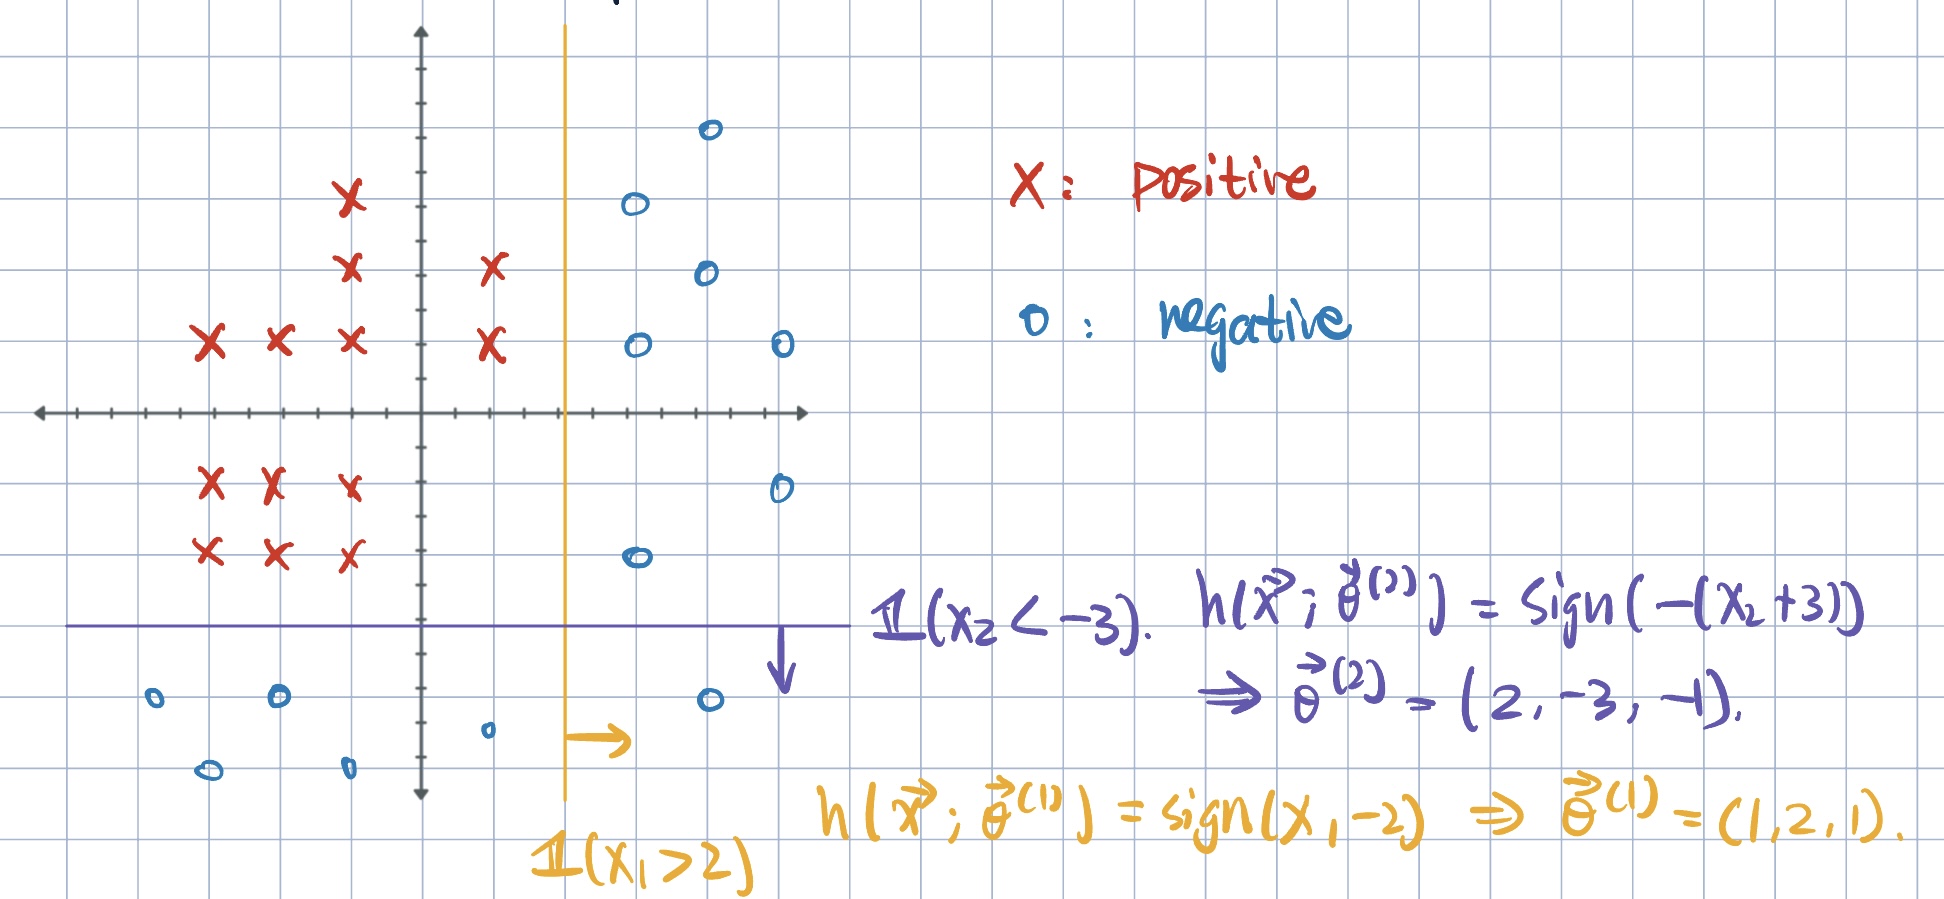 X: positive
O: negative
𝟙(x₂ < -3). h(x⃗; θ⃗⁽²⁾) = sign(-(x₂+3))
⇒ θ⃗⁽²⁾ = (2, -3, -1).
h(x⃗; θ⃗⁽¹⁾) = sign(x₁-2) ⇒ θ⃗⁽¹⁾ = (1, 2, 1).
𝟙(x₁>2)